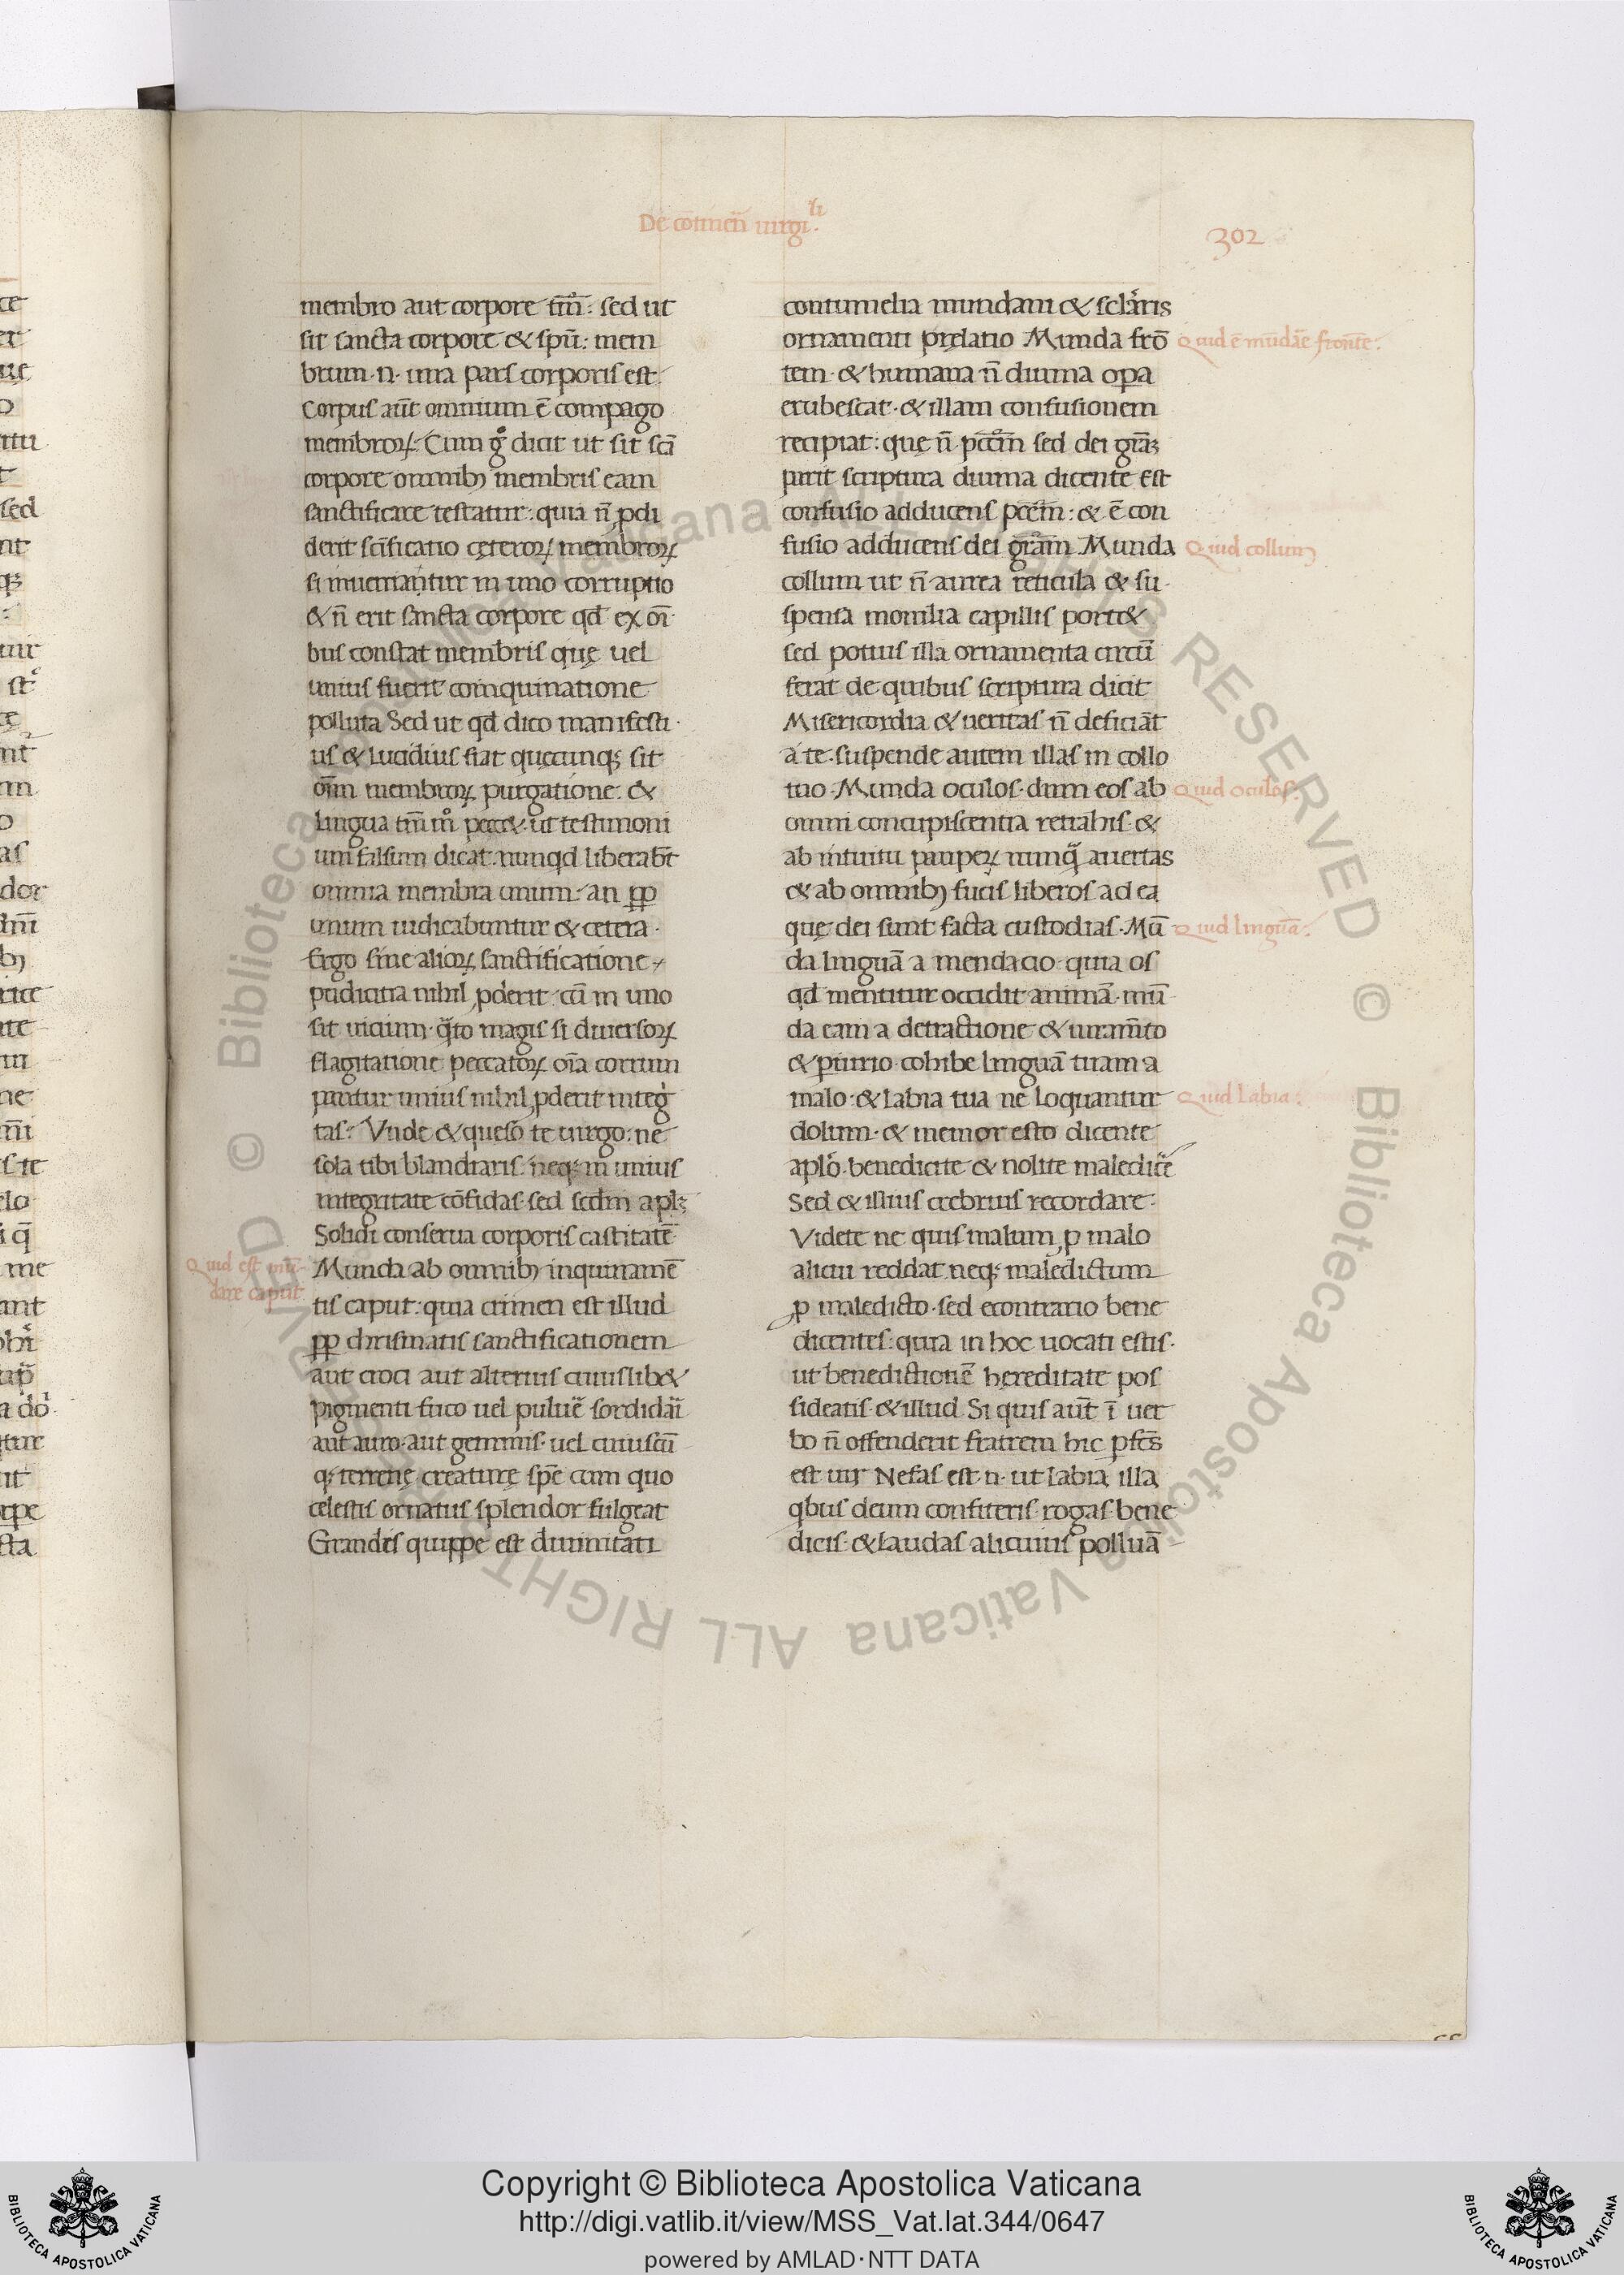 De cōmeñ uirgi.li
302
membro aut corpore tm̄: sed ut
sit sancta corpore & spū: mem
brum .n. una pars corporis est.
Corpus aūt omnium ē compago
membroꝝ. Cum gͦ dicit ut sit scā
corpore omnibꝫ membris eam
sanctificare testatur: quia n̄ ꝓdi
derit scīficatio cęteroꝝ membroꝝ
si inueniantur in uno corruptio
& n̄ erit sancta corpore qd̄ ex oī
bus constat membris quę uel
unius fuerit coinquinatione
polluta Sed ut qd̄ dico manifesti
us & lucidius fiat quęcunqꝫ sit
oīm membroꝝ purgatione. &
lingua tm̄ mͦ pecc& ut testimoni
um falsum dicat. nunqd liberabt̄
omnia membra unum. an ꝓꝑ
unum iudicabuntur & cetera.
Ergo sine alioꝝ sanctificatione
pudicitia nihil ꝓderit cū in uno
sit uicium. q̄to magis si diuersoꝝ
flagitatione peccatoꝝ oīa corrum
puntur unius nihil ꝓderit integͥ
tas? Vnde & queso te uirgo: ne
sola tibi blandiaris. neqꝫ in unius
integritate cōfidas. sed scdm aplꝫ
Solidi conserua corporis castitatē
Quid est mū-
dare caput.
Munda ab omnibꝫ inquinamē
tis caput: quia crimen est illud
ꝓꝑ chrismatis sanctificationem
aut croci aut alterius cuiuslib&
pigmenti fuco uel puluē sordidāi
aut auro. aut gemmis. uel cuiuscū
qꝫ terrenę creaturę spē cum quo
celestis ornatus splendor fulgeat
Grandis quippe est diuinitati
contumelia mundani & sclāris
ornamenti prelatio Munda frō
Quid ē mūdāe frontē.
tem. & humana n̄ diuina oꝑa
erubescat. & illam confusionem
recipiat: quę n̄ pcc̄m sed dei grāꝫ
parit scriptura diuina dicente Est
confusio adducens pcc̄m: & ē con
fusio adducens dei grām. Munda
Quid collum
collum ut n̄ aurea reticula & su
spensa monilia capillis port&
sed potius illa ornamenta circū
ferat de quibus scriptura dicit
Misericordia & ueritas n̄ deficiāt
a te. suspende autem illas in collo
tuo. Munda oculos. dum eos ab
Quid oculos.
omni concupiscentia retrahis. &
ab intuitu pauperꝝ nunq̄ auertas
& ab omnibꝫ fucis liberos ad ea
quę dei sunt facta custodias. Mū
Quid linguā.
da linguā a mendacio quia os
qd̄ mentitur occidit animā. mū
da eam a detractione & iuram̄to
& periurio. cohibe linguā tuam a
malo. & labia tua ne loquantur
Quid labia.
dolum. & memor esto dicente
aplō. benedicite & nolite maledicē
Sed & illius crebrius recordare.
Videte ne quis malum ꝓ malo
alicui reddat. neqꝫ maledictum
ꝓ maledicto. sed econtrario bene
dicentes: quia in hoc uocati estis.
ut benedictionē hereditate pos
sideatis. & illud. Si quis aūt ī uer
bo n̄ offenderit fratrem hic ꝑfcs̄
est uir Nefas est .n. ut labia illa
qͥbus deum confiteris. rogas. bene
dicis. & laudas alicuius polluā
Copyright © Biblioteca Apostolica Vaticana
http://digi.vatlib.it/view/MSS_Vat.lat.344/0647
powered by AMLAD・NTT DATA